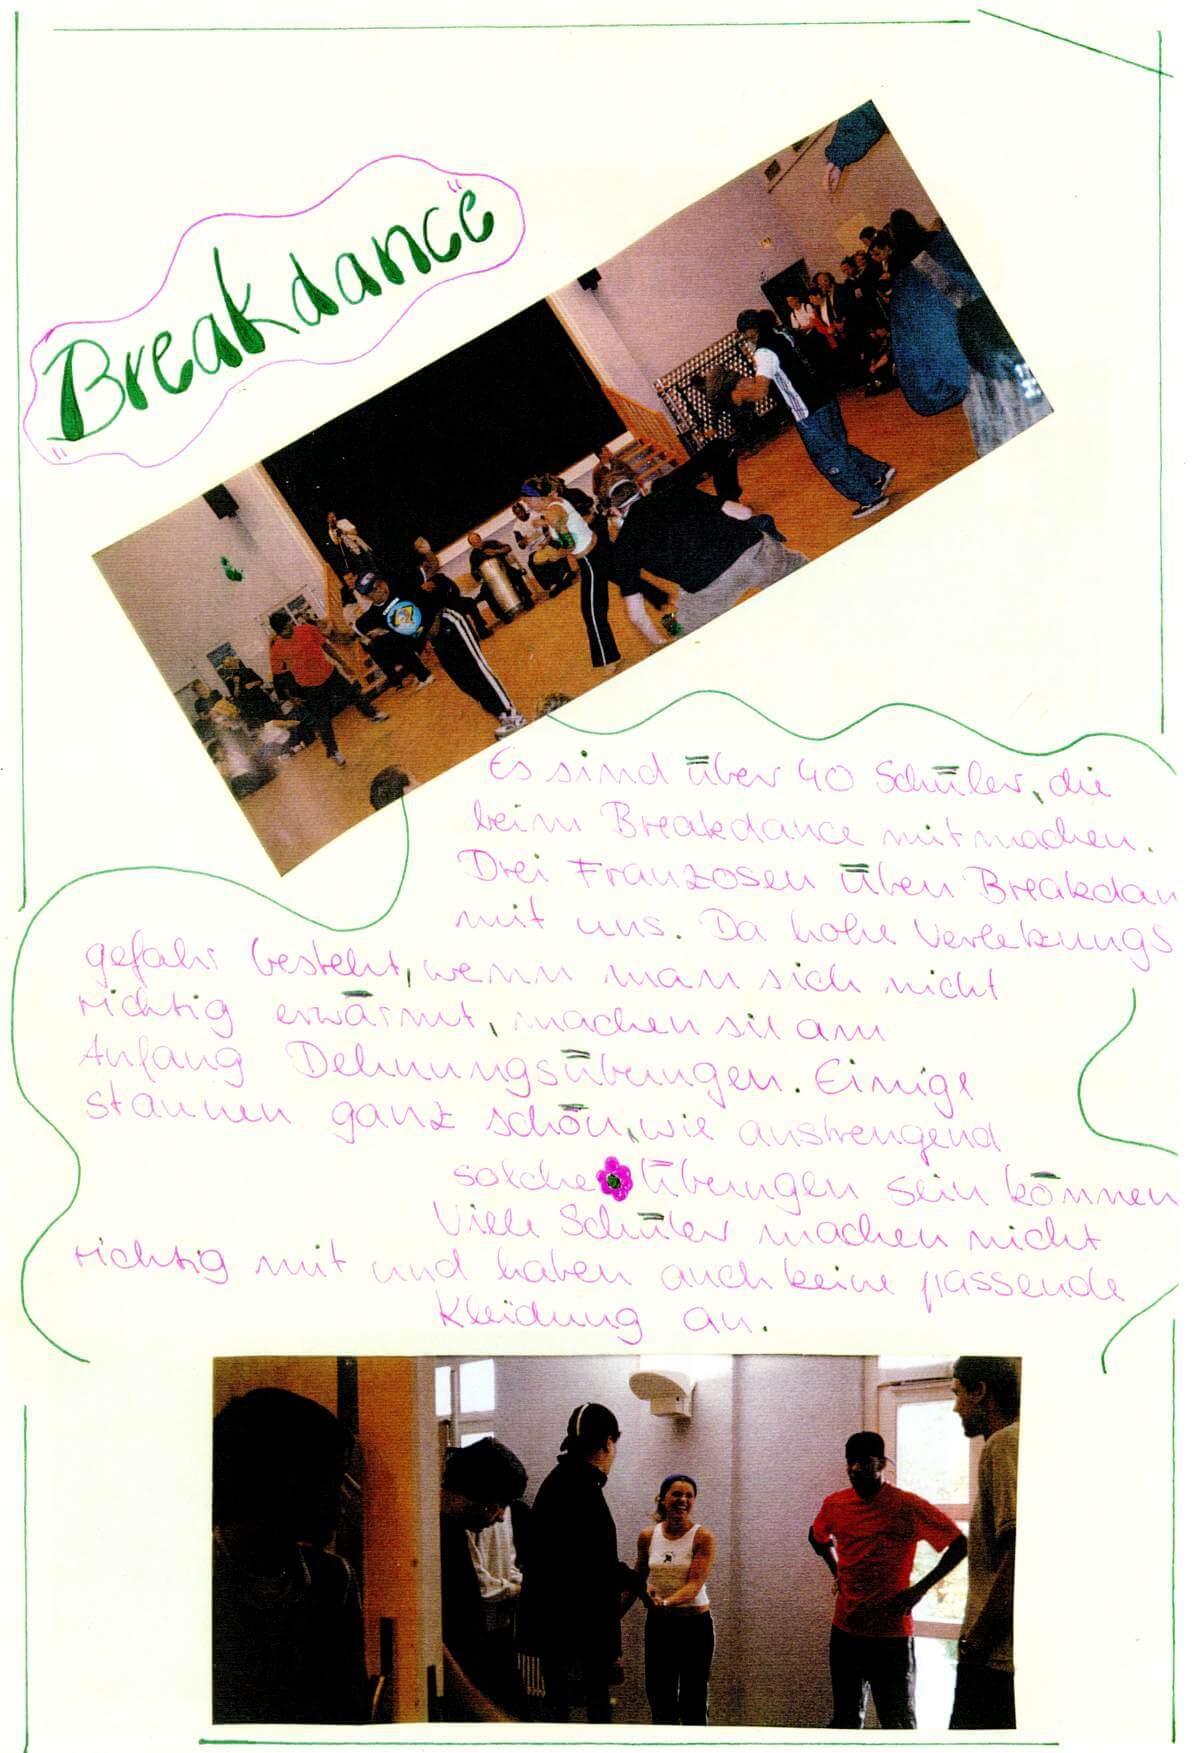 "Breakdance"
Es sind über 40 Schüler, die
beim Breakdance mitmachen.
Drei Franzosen üben Breakdan
mit uns. Da hohe Verletzungs
gefahr besteht, wenn man sich nicht
richtig erwärmt, machen sie am
Anfang Dehnungsübungen. Einige
staunen ganz schön, wie anstrengend
solche Übungen sein können
Viele Schüler machen nicht
richtig mit und haben auch keine passende
Kleidung an.